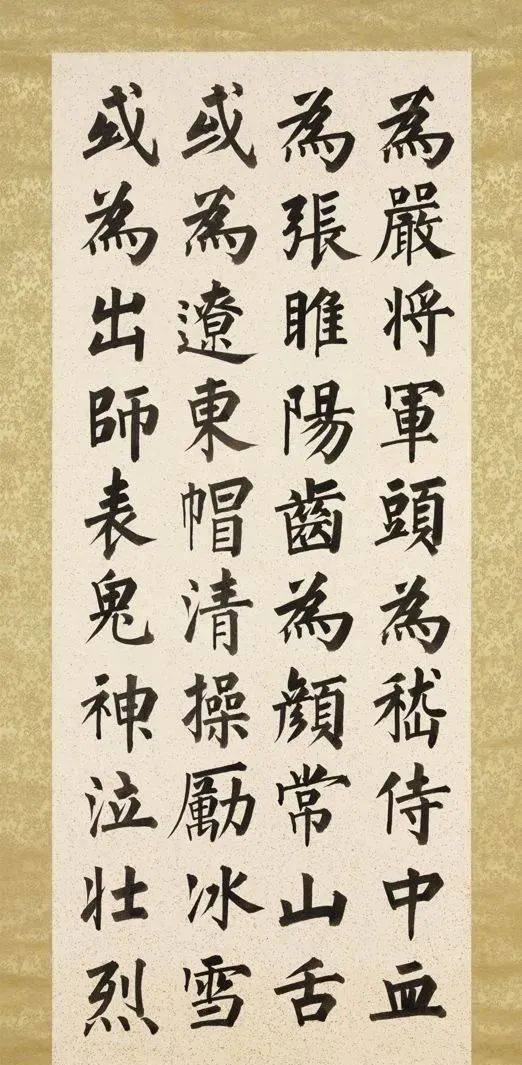 為嚴将軍頭為嵇侍中血
為張睢陽齒為顏常山舌
或為遼東帽清操厲冰雪
或為出師表鬼神泣壮烈